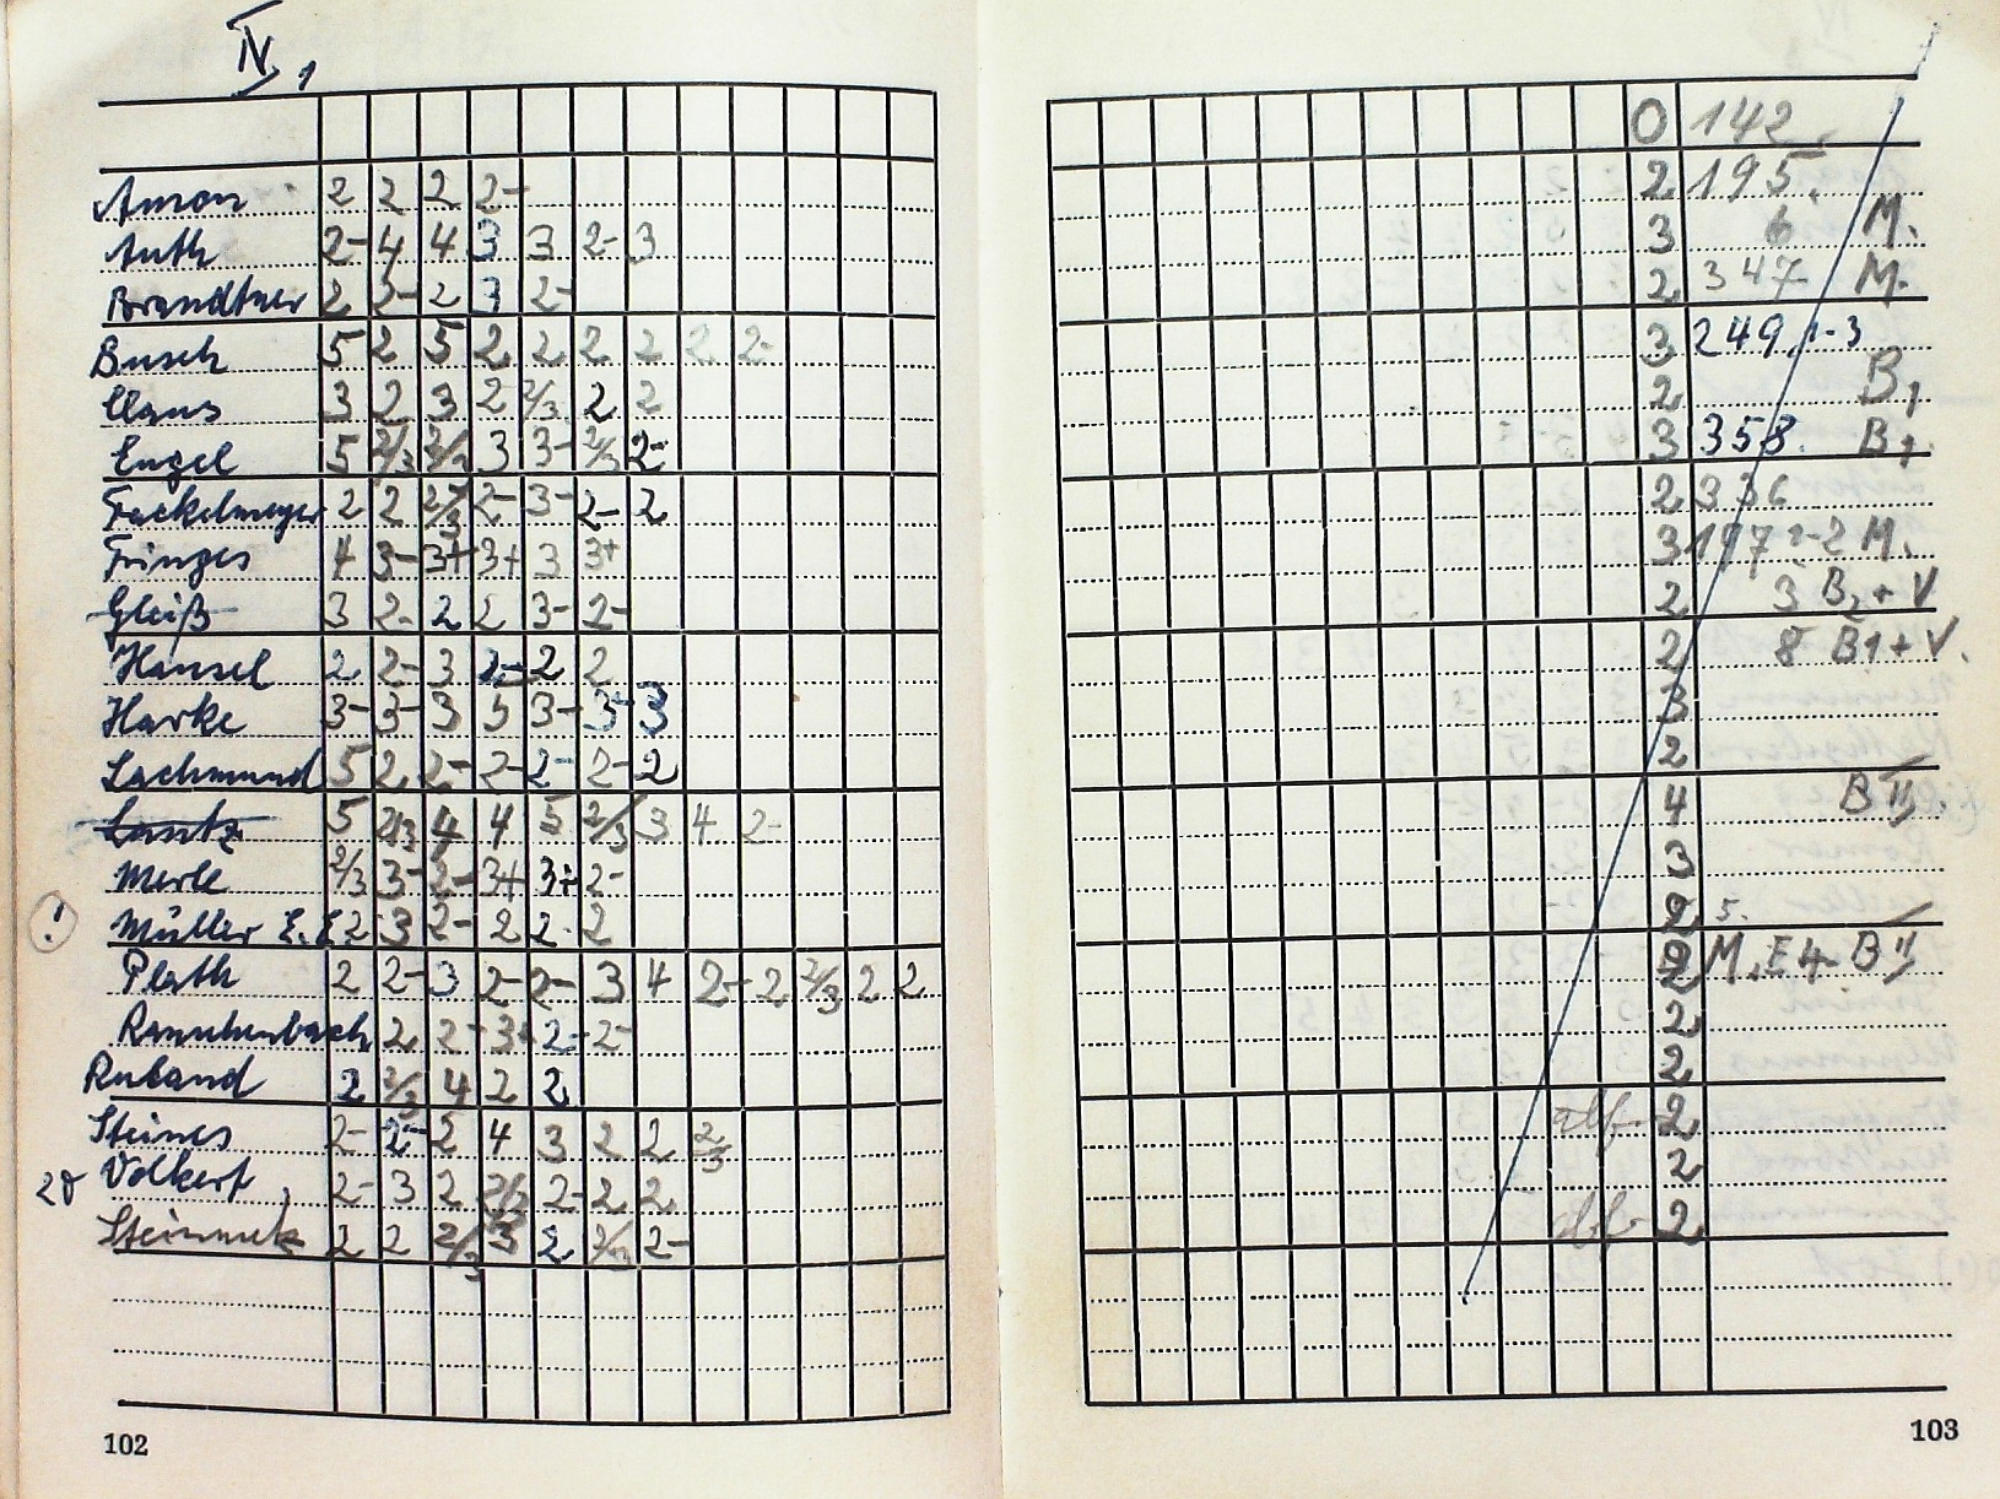 IV, 1
Amon 2 2 2 2-
Auth 2- 4 4 3 3 2- 3
Brandtner 2 2- 2 3 2-
Busch 5 2 5 2 2 2 2 2 2-
Claus 3 2 3 2 2/3 2 2
Engel 5 2/3 2/3 3 3- 2/3 2-
Fackelmeyer 2 2 2/3 2- 3- 2- 2
Fringes 4 3- 3+ 3+ 3 3+
Gleiß 3 2- 2 2 3- 2-
Hansel 2 2- 3 2- 2 2
Harke 3- 3- 3 5 3- 3+ 3
Lachmund 5 2 2- 2- 2- 2- 2
Lantz 5 2/3 4 4 5 2/3 3 4 2-
Merle 2/3 3- 2- 3+ 3+ 2-
! Müller E.E. 2 3 2- 2 2- 2
Plath 2 2- 3 2- 2- 3 4 2- 2 2/3 2 2
Rauschenbach 2 2- 3+ 2- 2-
Ruland 2 2/3 4 2 2
Steines 2- 2- 2 4 3 2 2 2/3
20 Volkert, 2- 3 2 2/3 2- 2 2
Steinmetz 2 2 2/3 3 2 2/3 2-
102
0 142.
2 195.
3 6 M.
2 347 M.
3 249, 1-3
2 B1
3 358. B1.
2 336
3 197 2-2 M.
2 3 B2 + V
2 8 B1 + V.
3
2
4 B II.
3
2 5.
2 M. E4- B II
2
2
2
2
2
103